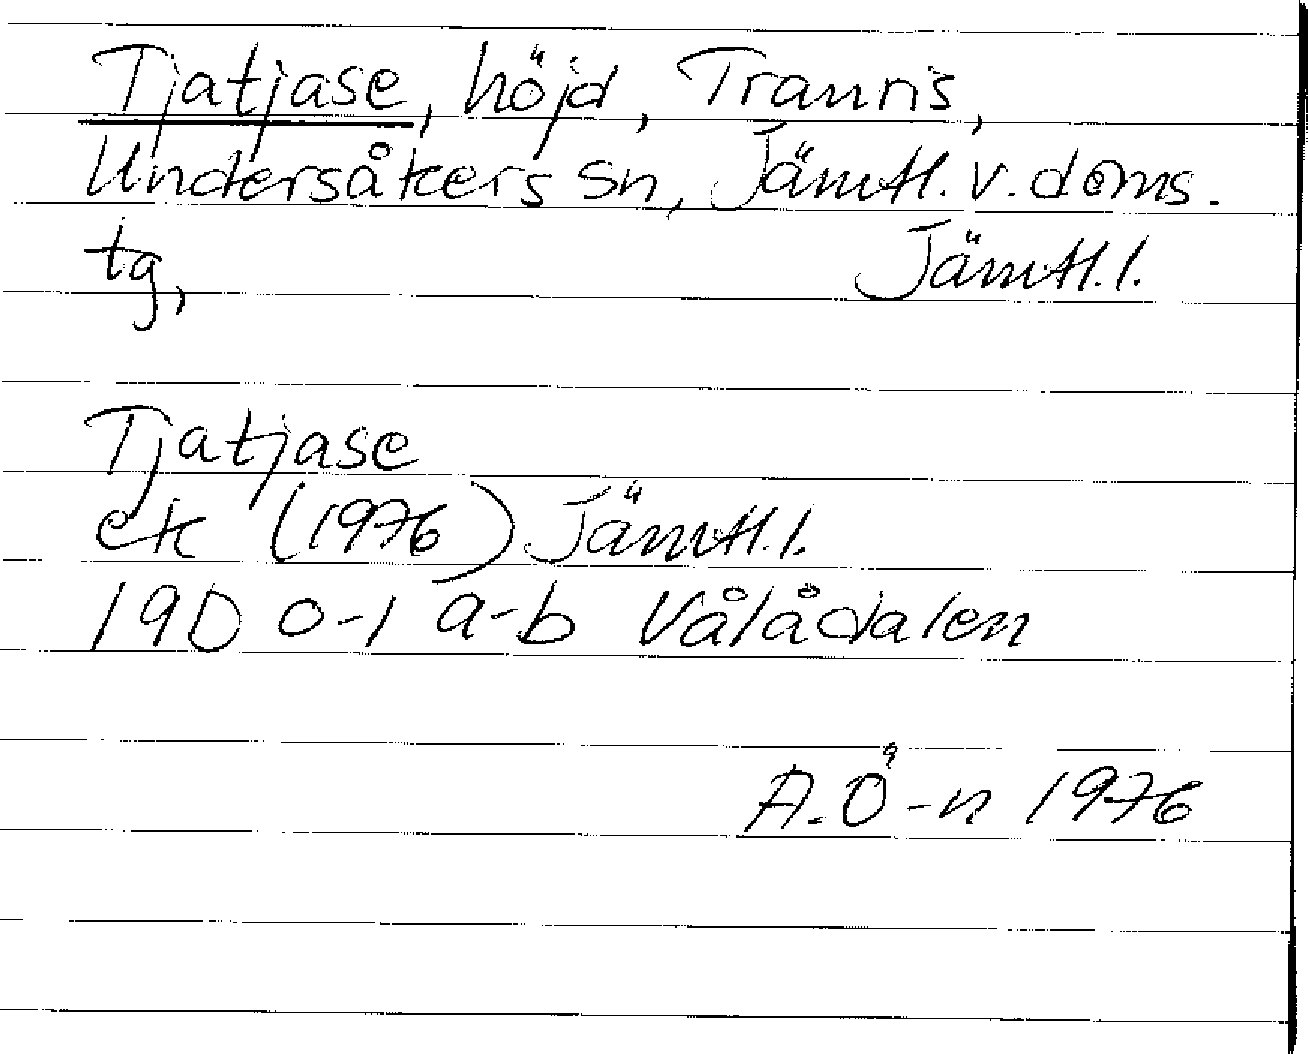 Tjatjase, höjd, Tranris,
Undersåkers sn, Jämtl. v. doms.
tg, Jämtl. l.
Tjatjase
ek (1976) Jämtl. l.
19D 0-1 a-b Vålådalen
A. Ö-n 1976